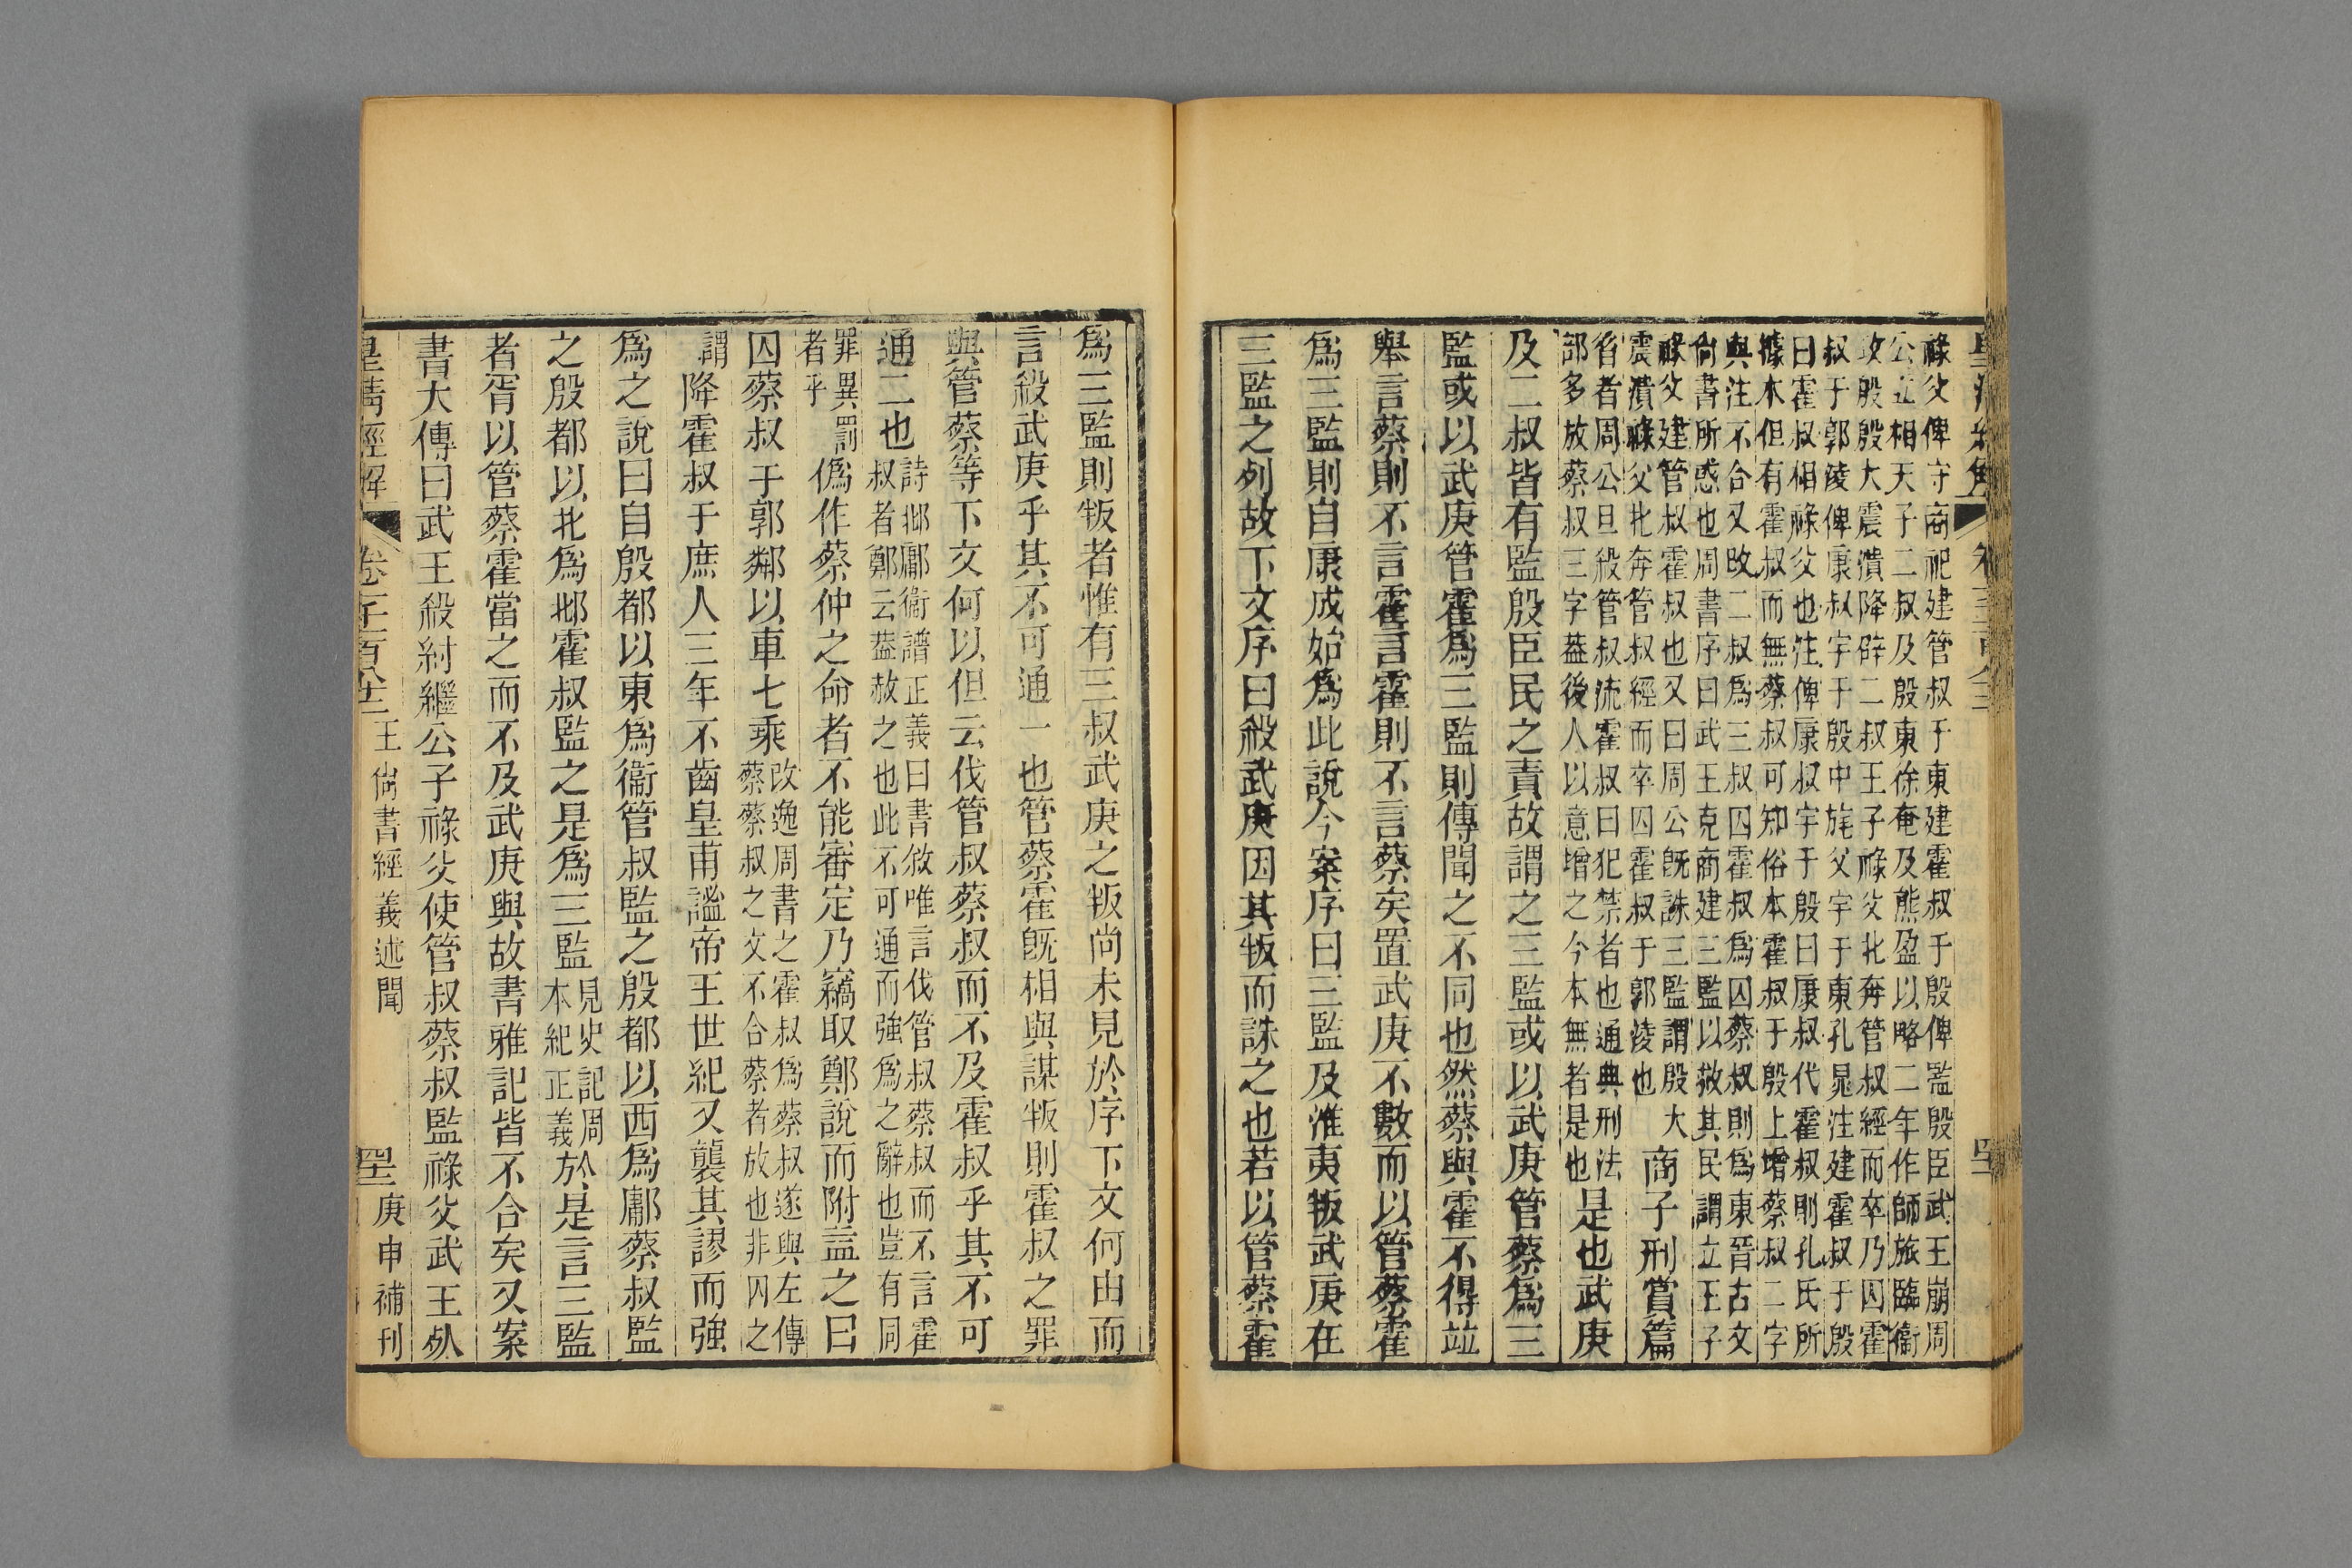 祿父俾守商祀建管叔于東建霍叔于殷俾監殷臣武王崩周
公立相天子二叔及殷東徐奄及熊盈以略二年作師旅臨衞
政殷殷大震潰降辟二叔王子祿父北奔管叔經而卒乃囚霍
叔于郭淩俾康叔宇于殷中旄父宇于東孔晁注建霍叔于殷
曰霍叔相祿父也注俾康叔宇于殷曰康叔代霍叔則孔氏所
據本但有霍叔而無蔡叔可知俗本霍叔于殷上增蔡叔二字
與注不合又改二叔爲三叔囚霍叔爲囚蔡叔則爲東晉古文
尙書所惑也周書序曰武王克商建三監以救其民謂立王子
祿父建管叔霍叔也又曰周公旣誅三監謂殷大
震潰祿父北奔管叔經而卒囚霍叔于郭淩也
商子刑賞篇
昝者周公旦殺管叔流霍叔曰犯禁者也通典刑法
部多放蔡叔三字葢後人以意增之今本無者是也
是也武庚
及二叔皆有監殷臣民之責故謂之三監或以武庚管蔡爲三
監或以武庚管霍爲三監則傳聞之不同也然蔡與霍不得竝
舉言蔡則不言霍言霍則不言蔡矣置武庚不數而以管蔡霍
爲三監則自康成始爲此說今案序曰三監及淮夷叛武庚在
三監之列故下文序曰殺武庚因其叛而誅之也若以管蔡霍
爲三監則叛者惟有三叔武庚之叛尚未見於序下文何由而
言殺武庚乎其不可通一也管蔡霍旣相與謀叛則霍叔之罪
與管蔡等下文何以但云伐管叔蔡叔而不及霍叔乎其不可
通二也
詩邶鄘衞譜正義曰書敘唯言伐管叔蔡叔而不言霍
叔者鄭云葢赦之也此不可通而強爲之辭也豈有同
罪異罰
者乎
僞作蔡仲之命者不能審定乃竊取鄭說而附益之曰
囚蔡叔于郭鄰以車七乘
改逸周書之霍叔爲蔡叔遂與左傳
蔡蔡叔之文不合蔡者放也非囚之
謂
降霍叔于庶人三年不齒皇甫謐帝王世紀又襲其謬而強
爲之說曰自殷都以東爲衞管叔監之殷都以西爲鄘蔡叔監
之殷都以北爲邶霍叔監之是爲三監
見史記周
本紀正義
於是言三監
者胥以管蔡霍當之而不及武庚與故書雅記皆不合矣又案
書大傳曰武王殺紂繼公子祿父使管叔蔡叔監祿父武王𣦸
皇淸經解
卷一千一百八十一
王尙書經義述聞
庚申補刊